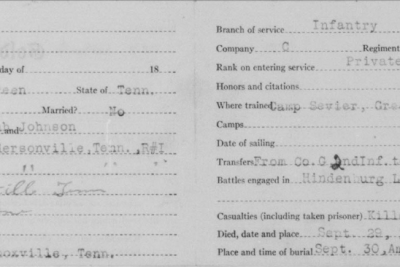 day of 18
State of Tenn.
Married? No
Johnson
dersonville, Tenn., R#1
" "
Tenn
noxville, Tenn.
Branch of service Infantry
Company C Regiment
Rank on entering service Private
Honors and citations
Where trained Camp Sevier, Gre
Camps
Date of sailing
Transfers From Co. G 2ndInf. t
Battles engaged in Hindenburg L
Casualties (including taken prisoner) Kill
Died, date and place Sept. 29,
Place and time of burial Sept. 30, Am